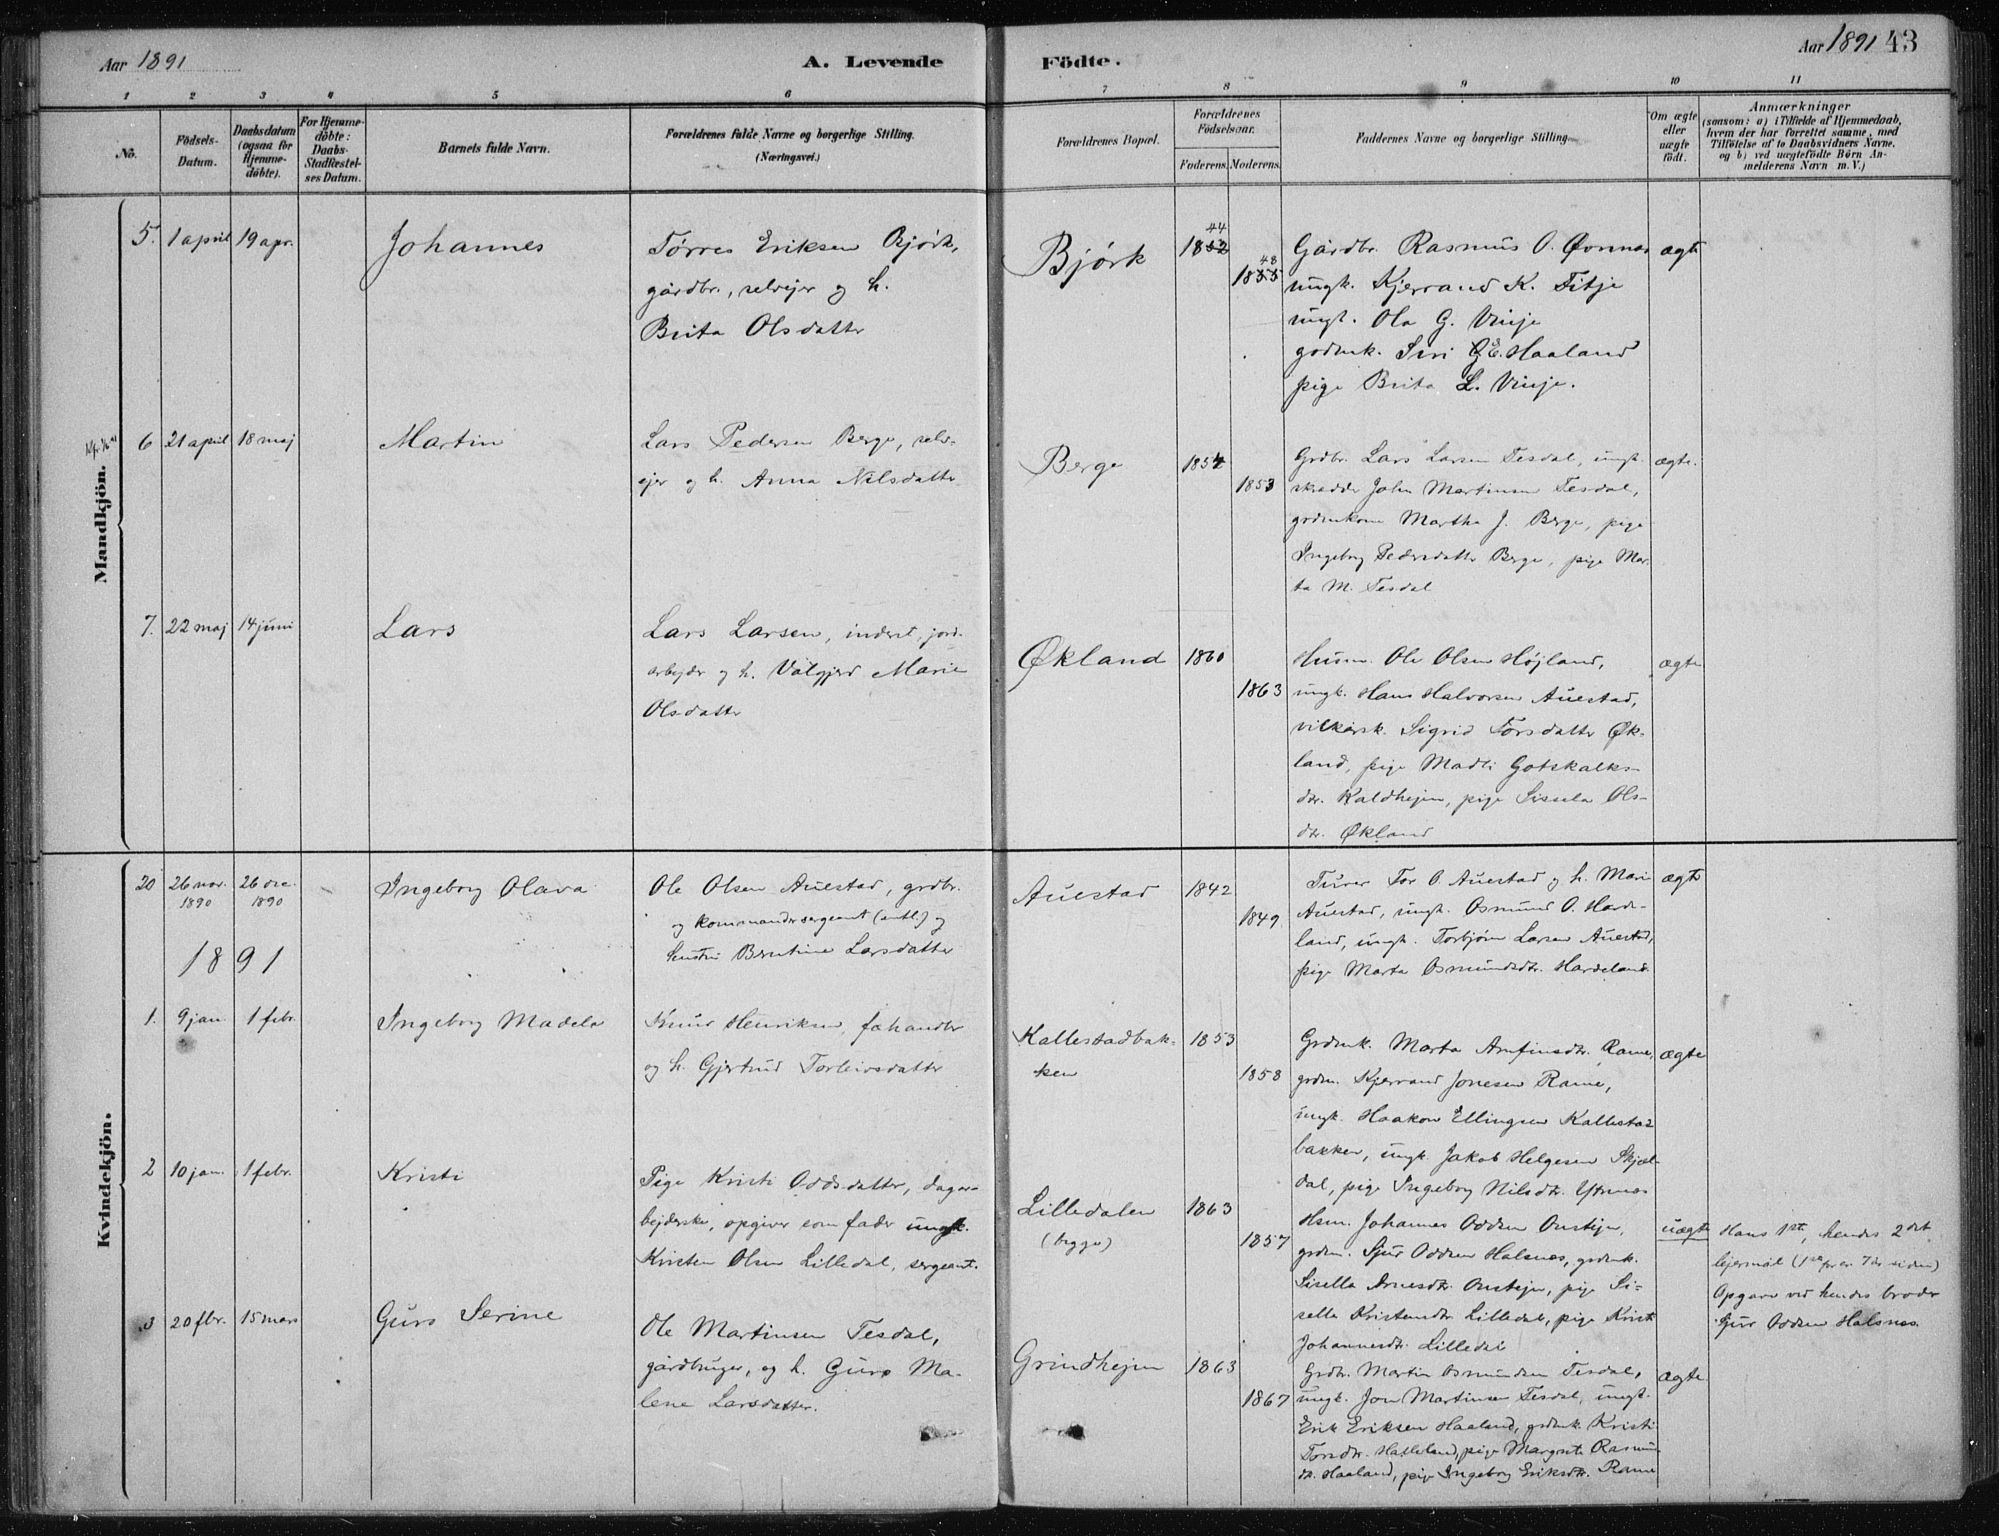 Aar 1891
A. Levende
Födte.
Aar 1891 43
1 2 3 4 5 6 7 8 9 10 11
No.
Födsels-
Datum.
Daabsdatum
(ogsaa för
Hjemme-
döbte).
For Hjemme-
döbte:
Daabs-
Stadfæstel-
ses Datum.
Barnets fulde Navn.
Forældrenes fulde Navne og borgerlige Stilling.
(Næringsvei.)
Forældrenes Bopæl.
Forældrenes
Födselsaar.
Faderens. Moderens.
Faddernes Navne og borgerlige Stilling.
Om ægte
eller
uægte
födt.
Anmærkninger
(saasom: a) i Tilfælde af Hjemmedaab,
hvem der har forrettet samme, med
Tilföielse af to Daabsvidners Navne,
og b) ved uægtefödte Börn An-
melderens Navn m. V.)
Mandkjön.
5. 1 april 19 apr.
Johannes
Tørres Eriksen Bjørk,
gårdbr., selvejer og h.
Brita Olsdatter
Bjørk
44
1852
48
1855
Gårdbr. Rasmus O. Øvrnes
ungk. Kjerrand K. Titje
ungk. Ola G. Vinje
gdmk. Siri G E. Haaland
pige Brita L. Vinje.
ægte
6 21 april 18 maj
Martin
Lars Pedersen Berge, selv-
ejer og h. Anna Nilsdatter
Berge
1854
1853
Grdbr. Lars Larsen Tesdal, ungk.
skrædder John Martinsen Tesdal,
grdmkone Martha J. Berge, pige
Ingeborg Pedersdatter Berge, pige Mar-
ta M. Tesdal
ægte.
7. 22 maj 14 juni
Lars
Lars Larsen, inderst, jord-
arbejder og h. Valgjerd Marie
Olsdatter
Økland
1860
1863
Husm. Ole Olsen Højland,
ungk. Hans Halvorsen Auestad,
vilkårsk. Sigrid Torsdatter Øk-
land, pige Madli Gotskalks-
dtr. Kaldhejm, pige Sissela Ols-
dtr. Økland
ægte
Kvindekjön.
20 26 nov. 26 dec.
1890 1890
Ingeborg Olava
Ole Olsen Auestad, grdbr.
og kommandersergeant (antl.) og
hustru Berntine Larsdatter
Auestad
1842
1849
Tor O. Auestad og h. Mari
Auestad, ungk. Osmund O. Harde-
land, ungk. Torbjørn Larsen Auestad,
pige Marta Osmundsdtr. Hardeland.
ægte
1891
1. 9 jan. 1 febr.
Ingeborg Madela
Knud Henriksen, fehandler
og h. Gjertrud Torleivsdatter
Kallestadbak-
ken
1853
1858
Grdmk. Marta Arnfinsdtr. Rame,
grdm. Kjerrand Jonesen Rame,
ungk. Haakon Ellingsen Kallestad
bakken, ungk. Jakob Helgesen Skjøl-
dal, pige Ingeborg Nilsdtr. Ytrnes
ægte
2 10 jan. 1 febr.
Kristi
Pige Kristi Oddsdatter, dagar-
bejderske, opgiver som fader ungk.
Kristen Olsen Lilledal, sergeant.
Lilledalen
(begge)
1863
1857
Hsm. Johannes Oddsen Onstejn,
grdm. Sjur Oddsen Halsnes, grdmk.
Sisella Arnesdtr. Onstejn, pige Si-
sella Kristensdtr. Lilledal, pige Kristi
Johannesdtr. Lilledal
uægte
Hans 1ste, hendes 2det
lejermål (1ste for er 7 år siden)
Opgave ved hendes broder
Sjur Oddsen Halsnes.
3 20 fbr. 15 mars
Guro Serine
Ole Martinsen Tesdal,
gårdbruger, og h. Guro Ma-
lene Larsdatter.
Grindhejm
1863
1867
Grdbr. Martin Osmundsen Tesdal,
ungk. Jon Martinsen Tesdal, ungk.
Erik Eriksen Haaland, grdmk. Kristi
Torsdtr. Hatleland, pige Margrete Rasmus
dtr. Haaland, pige Ingeborg Eriksdtr. Rame
ægte